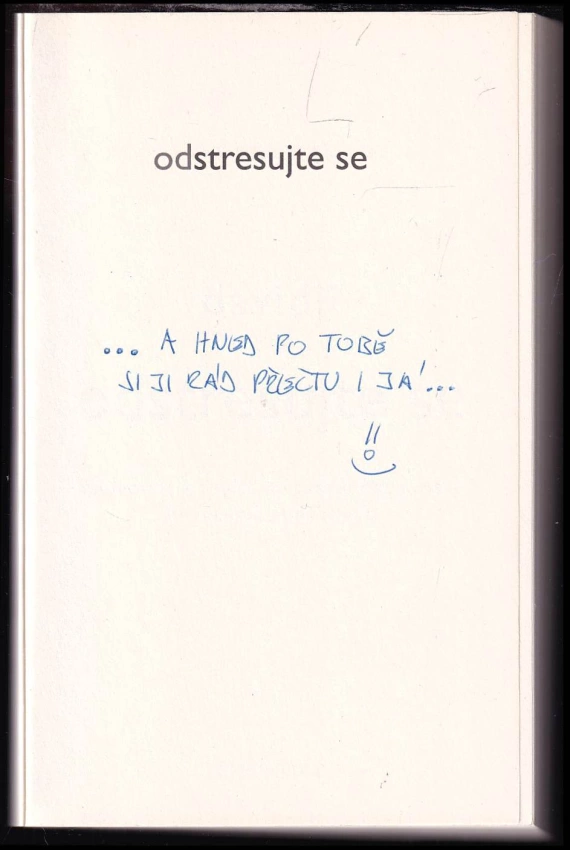 odstresujte se
... A HNED PO TOBĚ
SI JI RÁD PŘEČTU I JÁ...